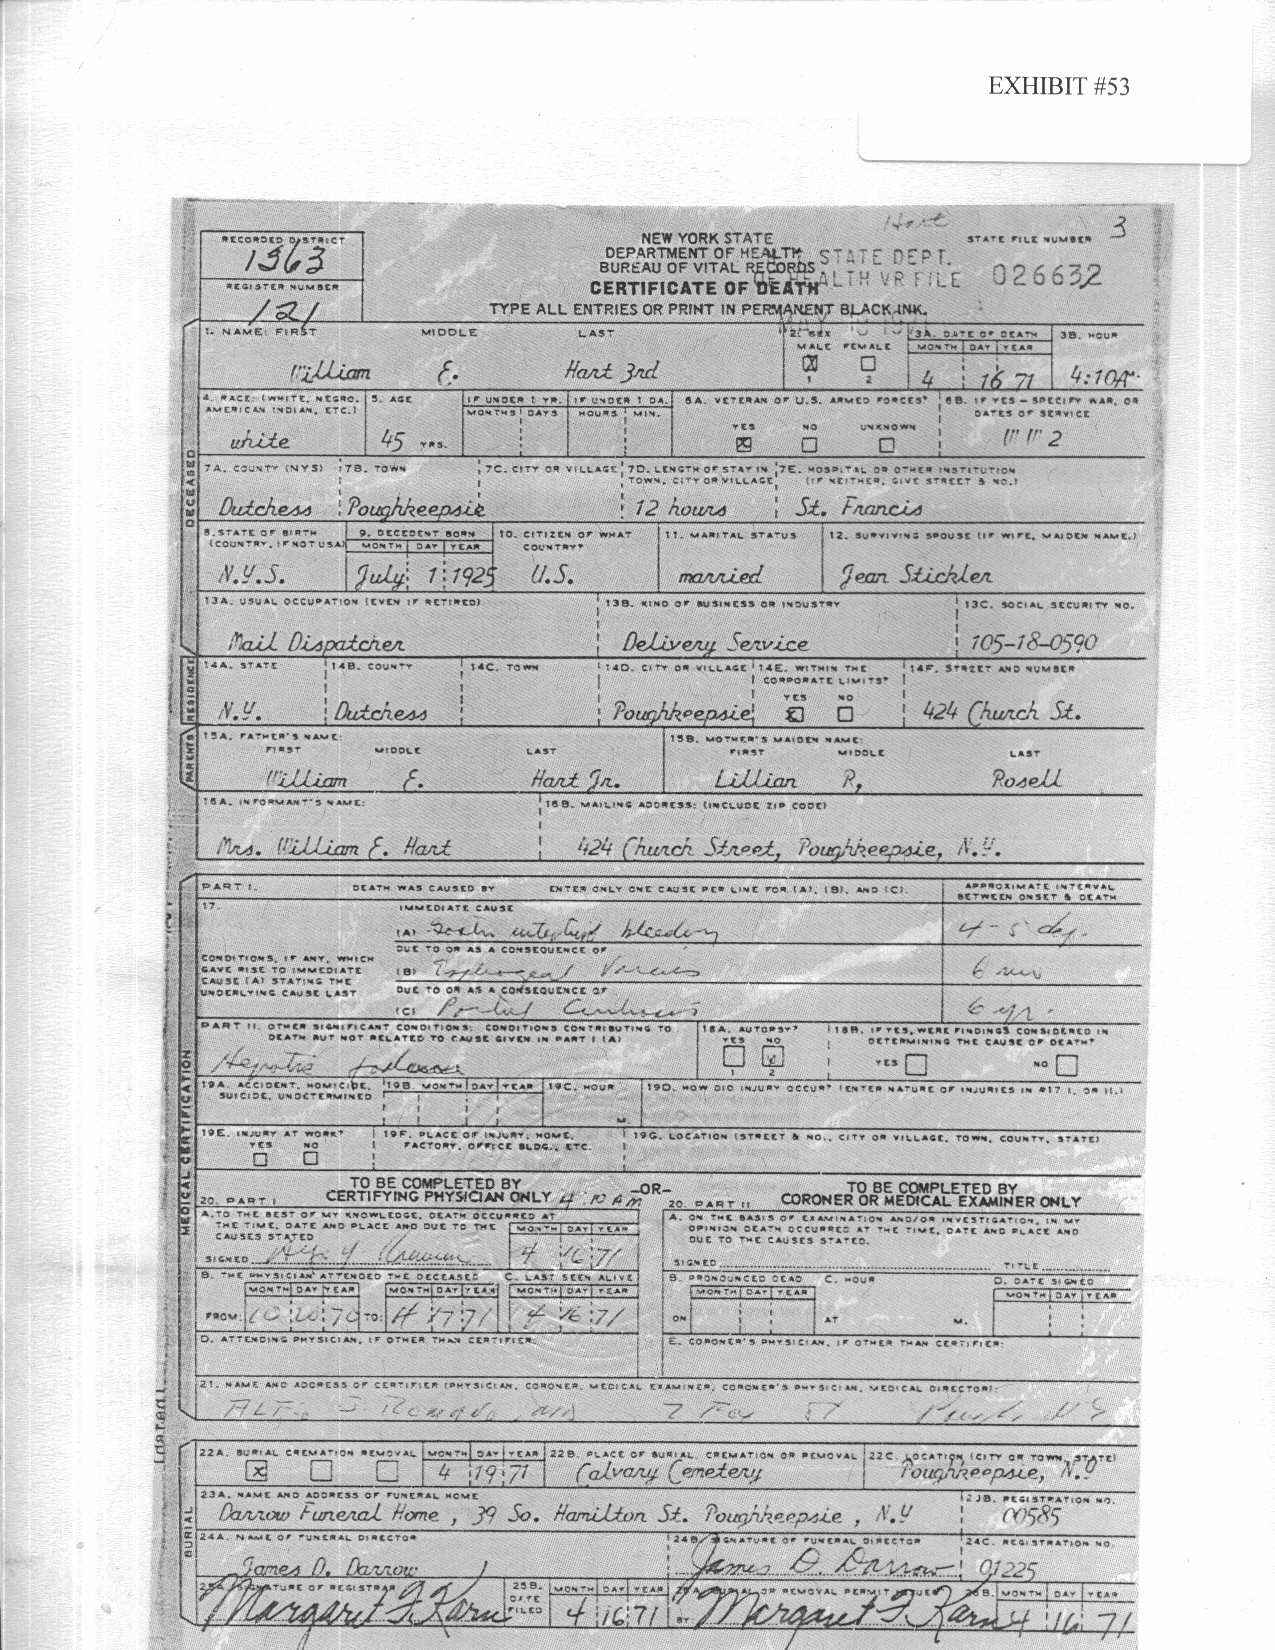 EXHIBIT #53
Hart 3
RECORDED DISTRICT
1363
REGISTER NUMBER
121
NEW YORK STATE
DEPARTMENT OF HEALTH
BUREAU OF VITAL RECORDS
CERTIFICATE OF DEATH
TYPE ALL ENTRIES OR PRINT IN PERMANENT BLACK INK.
STATE DEPT.
OF HEALTH VR FILE
STATE FILE NUMBER
026632
1. NAME: FIRST MIDDLE LAST
William E. Hart 3rd
2. SEX
MALE FEMALE
1 2
3A. DATE OF DEATH
MONTH DAY YEAR
4 16 71
3B. HOUR
4:10A M.
4. RACE: (WHITE, NEGRO, AMERICAN INDIAN, ETC.)
white
5. AGE
45 YRS.
IF UNDER 1 YR.
MONTHS DAYS
IF UNDER 1 DA.
HOURS MIN.
6A. VETERAN OF U.S. ARMED FORCES?
YES NO UNKNOWN
6B. IF YES - SPECIFY WAR, OR DATES OF SERVICE
W W 2
DECEASED
7A. COUNTY (NYS)
Dutchess
7B. TOWN
Poughkeepsie
7C. CITY OR VILLAGE
7D. LENGTH OF STAY IN TOWN, CITY OR VILLAGE
12 hours
7E. HOSPITAL OR OTHER INSTITUTION (IF NEITHER, GIVE STREET & NO.)
St. Francis
8. STATE OF BIRTH (COUNTRY, IF NOT USA)
N.Y.S.
9. DECEDENT BORN
MONTH DAY YEAR
July 1 1925
10. CITIZEN OF WHAT COUNTRY?
U.S.
11. MARITAL STATUS
married
12. SURVIVING SPOUSE (IF WIFE, MAIDEN NAME.)
Jean Stickler
13A. USUAL OCCUPATION (EVEN IF RETIRED)
Mail Dispatcher
13B. KIND OF BUSINESS OR INDUSTRY
Delivery Service
13C. SOCIAL SECURITY NO.
105-18-0590
RESIDENCE
14A. STATE
N.Y.
14B. COUNTY
Dutchess
14C. TOWN
14D. CITY OR VILLAGE
Poughkeepsie
14E. WITHIN THE CORPORATE LIMITS?
YES NO
14F. STREET AND NUMBER
424 Church St.
PARENTS
15A. FATHER'S NAME:
FIRST MIDDLE LAST
William E. Hart Jr.
15B. MOTHER'S MAIDEN NAME:
FIRST MIDDLE LAST
Lillian R. Rosell
16A. INFORMANT'S NAME:
Mrs. William E. Hart
16B. MAILING ADDRESS: (INCLUDE ZIP CODE)
424 Church Street, Poughkeepsie, N.Y.
MEDICAL CERTIFICATION
PART I. DEATH WAS CAUSED BY ENTER ONLY ONE CAUSE PER LINE FOR (A), (B), AND (C).
APPROXIMATE INTERVAL BETWEEN ONSET & DEATH
17. IMMEDIATE CAUSE
(A) bleeding 4-5
DUE TO OR AS A CONSEQUENCE OF
CONDITIONS, IF ANY, WHICH GAVE RISE TO IMMEDIATE CAUSE (A) STATING THE UNDERLYING CAUSE LAST
(B) Esophogeal Varices 6
DUE TO OR AS A CONSEQUENCE OF
(C) Portal Cirrhosis 6 yr.
PART II. OTHER SIGNIFICANT CONDITIONS: CONDITIONS CONTRIBUTING TO DEATH BUT NOT RELATED TO CAUSE GIVEN IN PART I (A)
Hepatic
18A. AUTOPSY?
YES NO
1 2
18B. IF YES, WERE FINDINGS CONSIDERED IN DETERMINING THE CAUSE OF DEATH?
YES NO
19A. ACCIDENT, HOMICIDE, SUICIDE, UNDETERMINED
19B. MONTH DAY YEAR
19C. HOUR
M.
19D. HOW DID INJURY OCCUR? (ENTER NATURE OF INJURIES IN #17 I. OR II.)
19E. INJURY AT WORK?
YES NO
19F. PLACE OF INJURY, HOME, FACTORY, OFFICE BLDG., ETC.
19G. LOCATION (STREET & NO., CITY OR VILLAGE, TOWN, COUNTY, STATE)
TO BE COMPLETED BY
CERTIFYING PHYSICIAN ONLY 4:10 AM
-OR-
TO BE COMPLETED BY
CORONER OR MEDICAL EXAMINER ONLY
20. PART I
A. TO THE BEST OF MY KNOWLEDGE, DEATH OCCURRED AT THE TIME, DATE AND PLACE AND DUE TO THE CAUSES STATED
MONTH DAY YEAR
SIGNED 4 16 71
20. PART II
A. ON THE BASIS OF EXAMINATION AND/OR INVESTIGATION, IN MY OPINION DEATH OCCURRED AT THE TIME, DATE AND PLACE AND DUE TO THE CAUSES STATED.
SIGNED TITLE
B. THE PHYSICIAN ATTENDED THE DECEASED
MONTH DAY YEAR MONTH DAY YEAR
FROM: 10 20 70 TO: 4 17 71
C. LAST SEEN ALIVE
MONTH DAY YEAR
4 16 71
B. PRONOUNCED DEAD
MONTH DAY YEAR
ON
C. HOUR
AT M.
D. DATE SIGNED
MONTH DAY YEAR
D. ATTENDING PHYSICIAN, IF OTHER THAN CERTIFIER:
E. CORONER'S PHYSICIAN, IF OTHER THAN CERTIFIER:
21. NAME AND ADDRESS OF CERTIFIER (PHYSICIAN, CORONER, MEDICAL EXAMINER, CORONER'S PHYSICIAN, MEDICAL DIRECTOR):
BURIAL
22A. BURIAL CREMATION REMOVAL
MONTH DAY YEAR
4 19 71
22B. PLACE OF BURIAL, CREMATION OR REMOVAL
Calvary Cemetery
22C. LOCATION (CITY OR TOWN, STATE)
Poughkeepsie, N.Y
23A. NAME AND ADDRESS OF FUNERAL HOME
Darrow Funeral Home, 39 So. Hamilton St. Poughkeepsie, N.Y
23B. REGISTRATION NO.
00585
24A. NAME OF FUNERAL DIRECTOR
James D. Darrow
24B. SIGNATURE OF FUNERAL DIRECTOR
James D. Darrow
24C. REGISTRATION NO.
01225
25A. SIGNATURE OF REGISTRAR
Margaret F. Karn
25B. DATE FILED
MONTH DAY YEAR
4 16 71
26A. BURIAL OR REMOVAL PERMIT ISSUED
BY Margaret F. Karn
26B. MONTH DAY YEAR
4 16 71